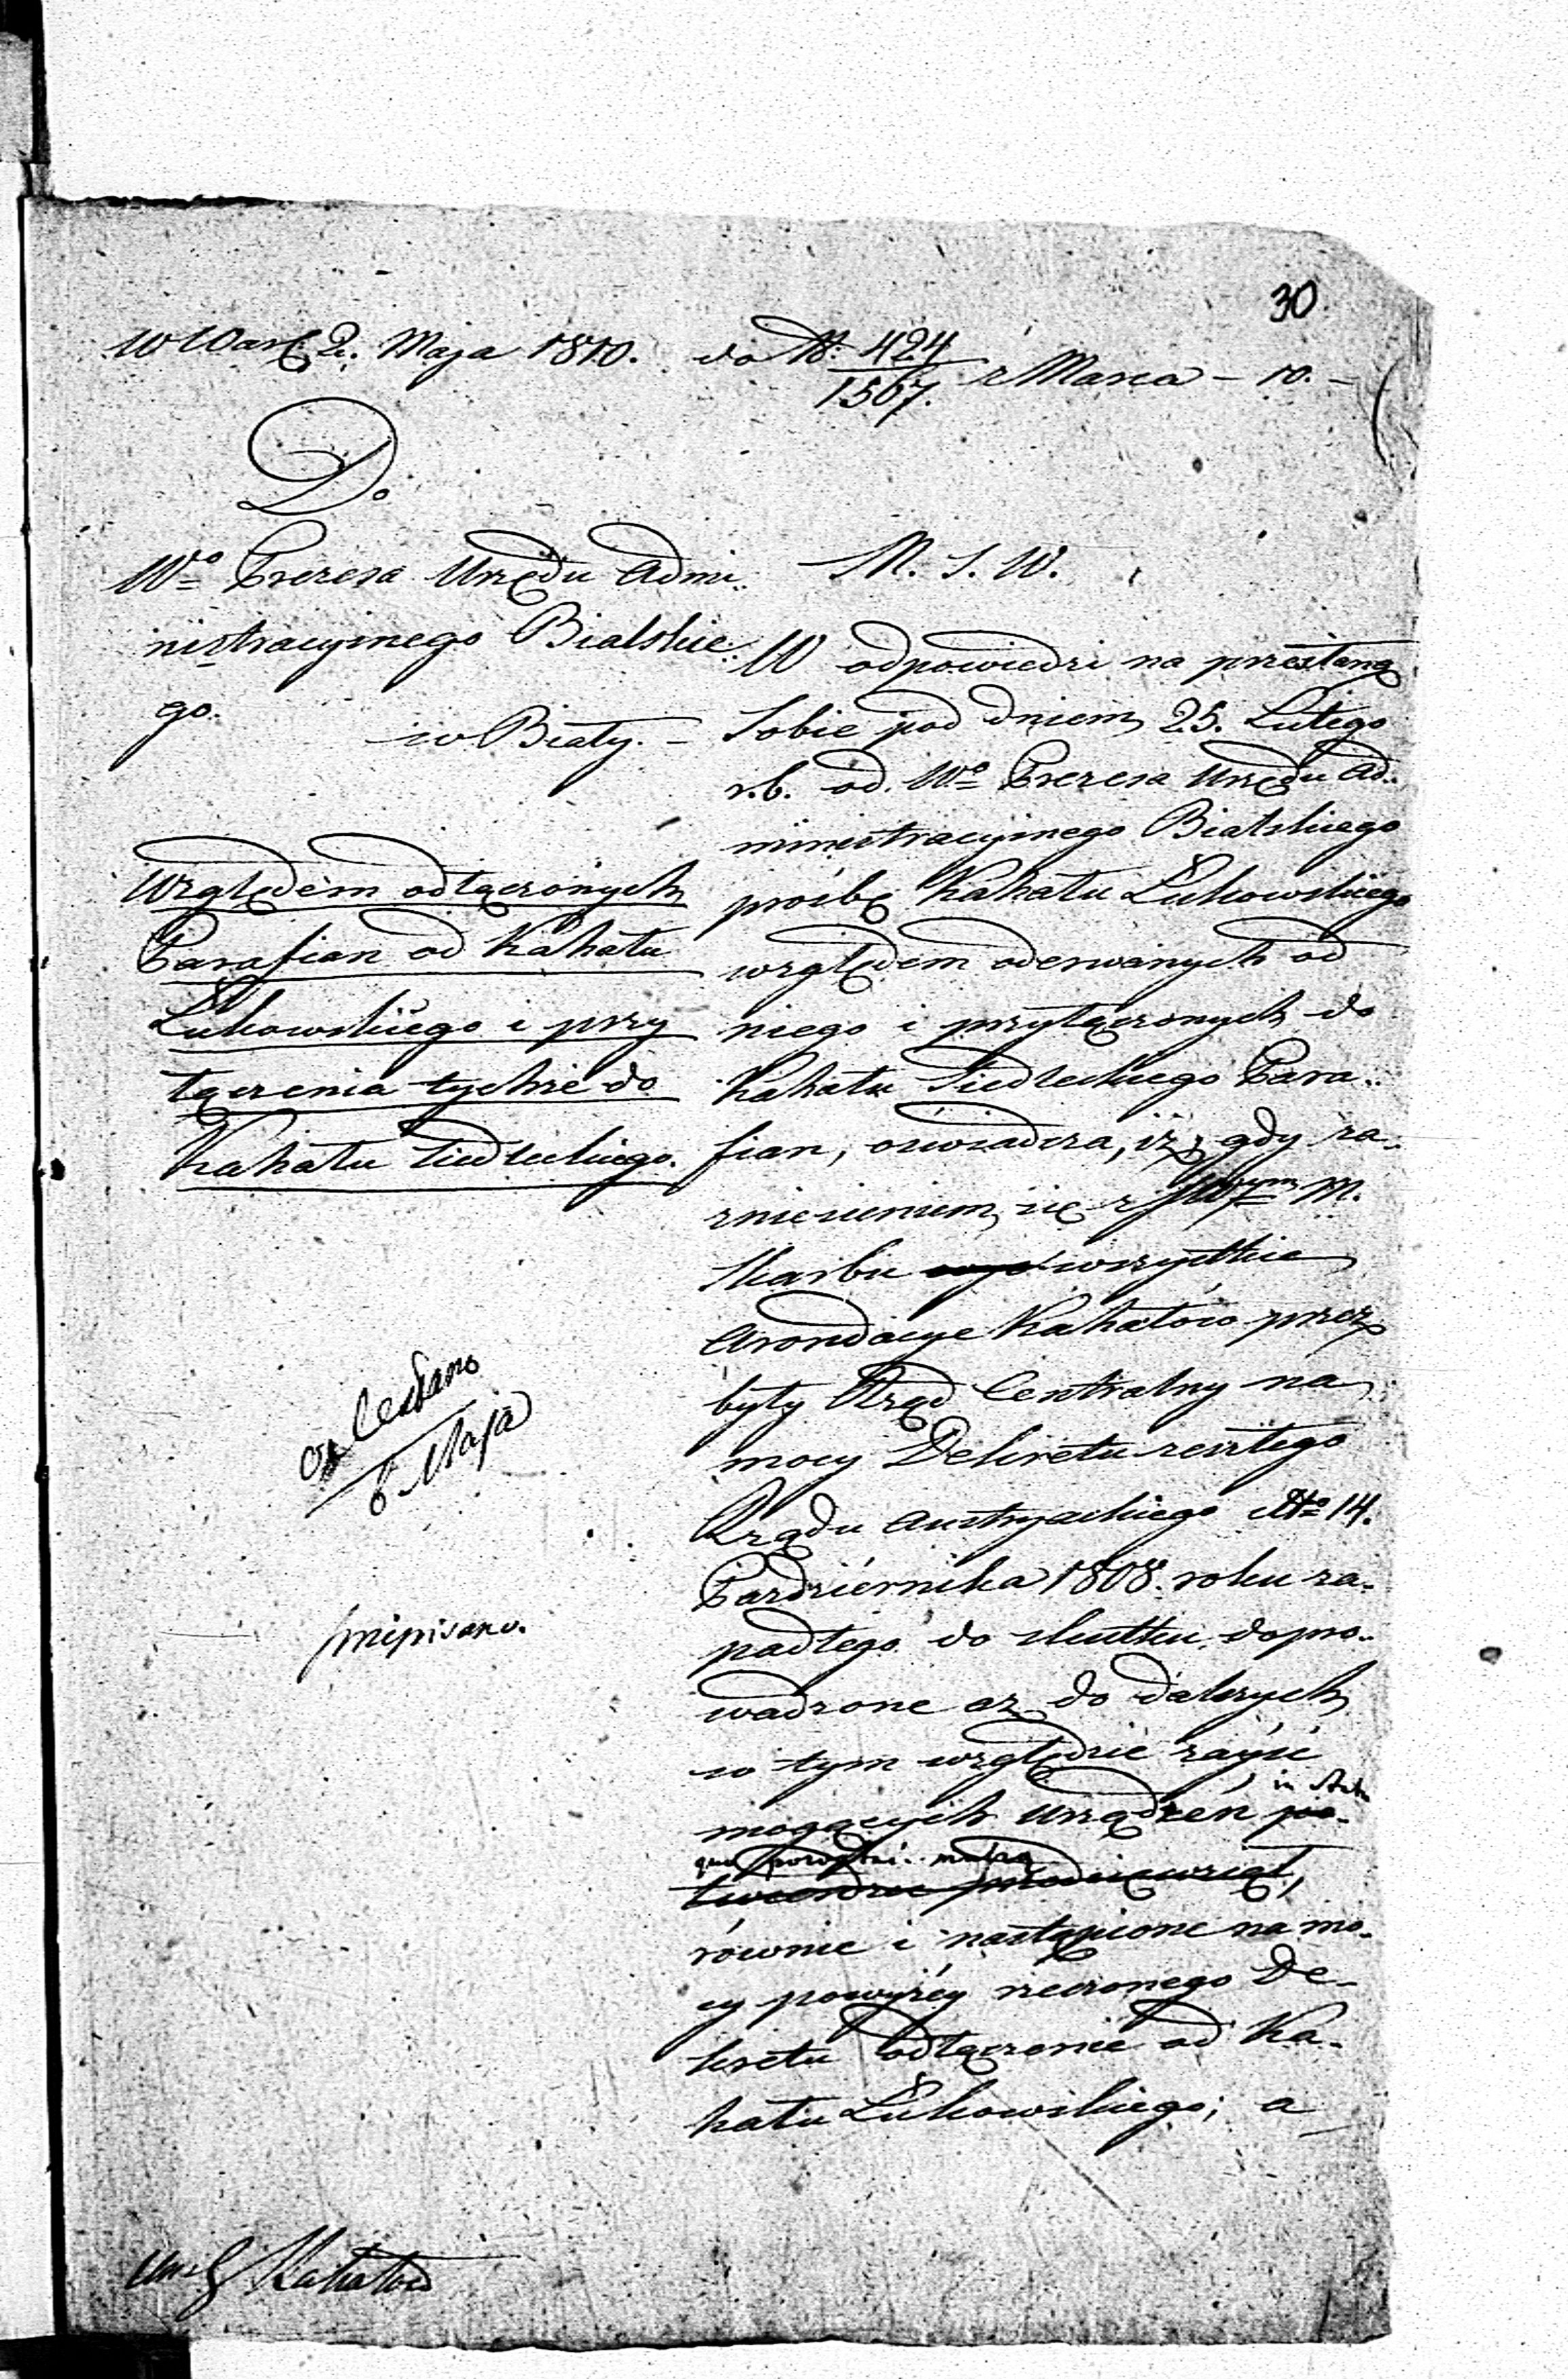 30.
w Wars. 2. Maja 1810. do N. 424/1567. z Marca – 10. –
Do
Wo Prezesa Urzędu Admi
nistracyinego Bialskie
go.
w Biały. –
Względem odłączonych
Parafian od Kahału
Łukowskiego i przy
łączenia tychże do
Kahału Siedleckiego.
M. S. W.
W odpowiedzi na przesłaną
Sobie pod dniem 25. Lutego
r. b. od Wo Prezesa Urzędu Ad-
ministracyinego Bialskiego
prośbę Kahału Łukowskiego
względem oderwanych od
niego i przyłączonych do
Kahału Siedleckiego Para-
fian, oświadcza, iż gdy za
zniesieniem się z JWym M.
Skarbu wszystkie
Arondacye Kahałów przez
były Rząd Centralny na
mocy Dekretu zeszłego
Rządu Austryackiego dtto 14.
Pazdziernika 1808. roku za-
padłego do skutku dopro-
wadzone aż do dalszych
w tym względzie zayść
mogących urządzeń in Statu
quo pozostać maią,
równie i nastąpione na mo-
cy powyżey rzeczonego De-
kretu odłączenie od Ka-
hału Łukowskiego; a
6 Maja
przepisano.
Kahałow